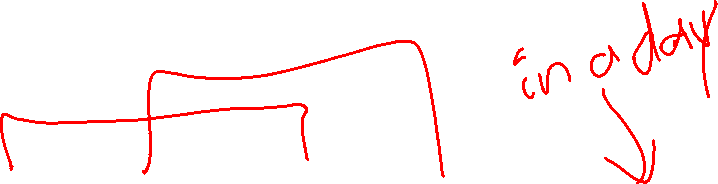 in a day